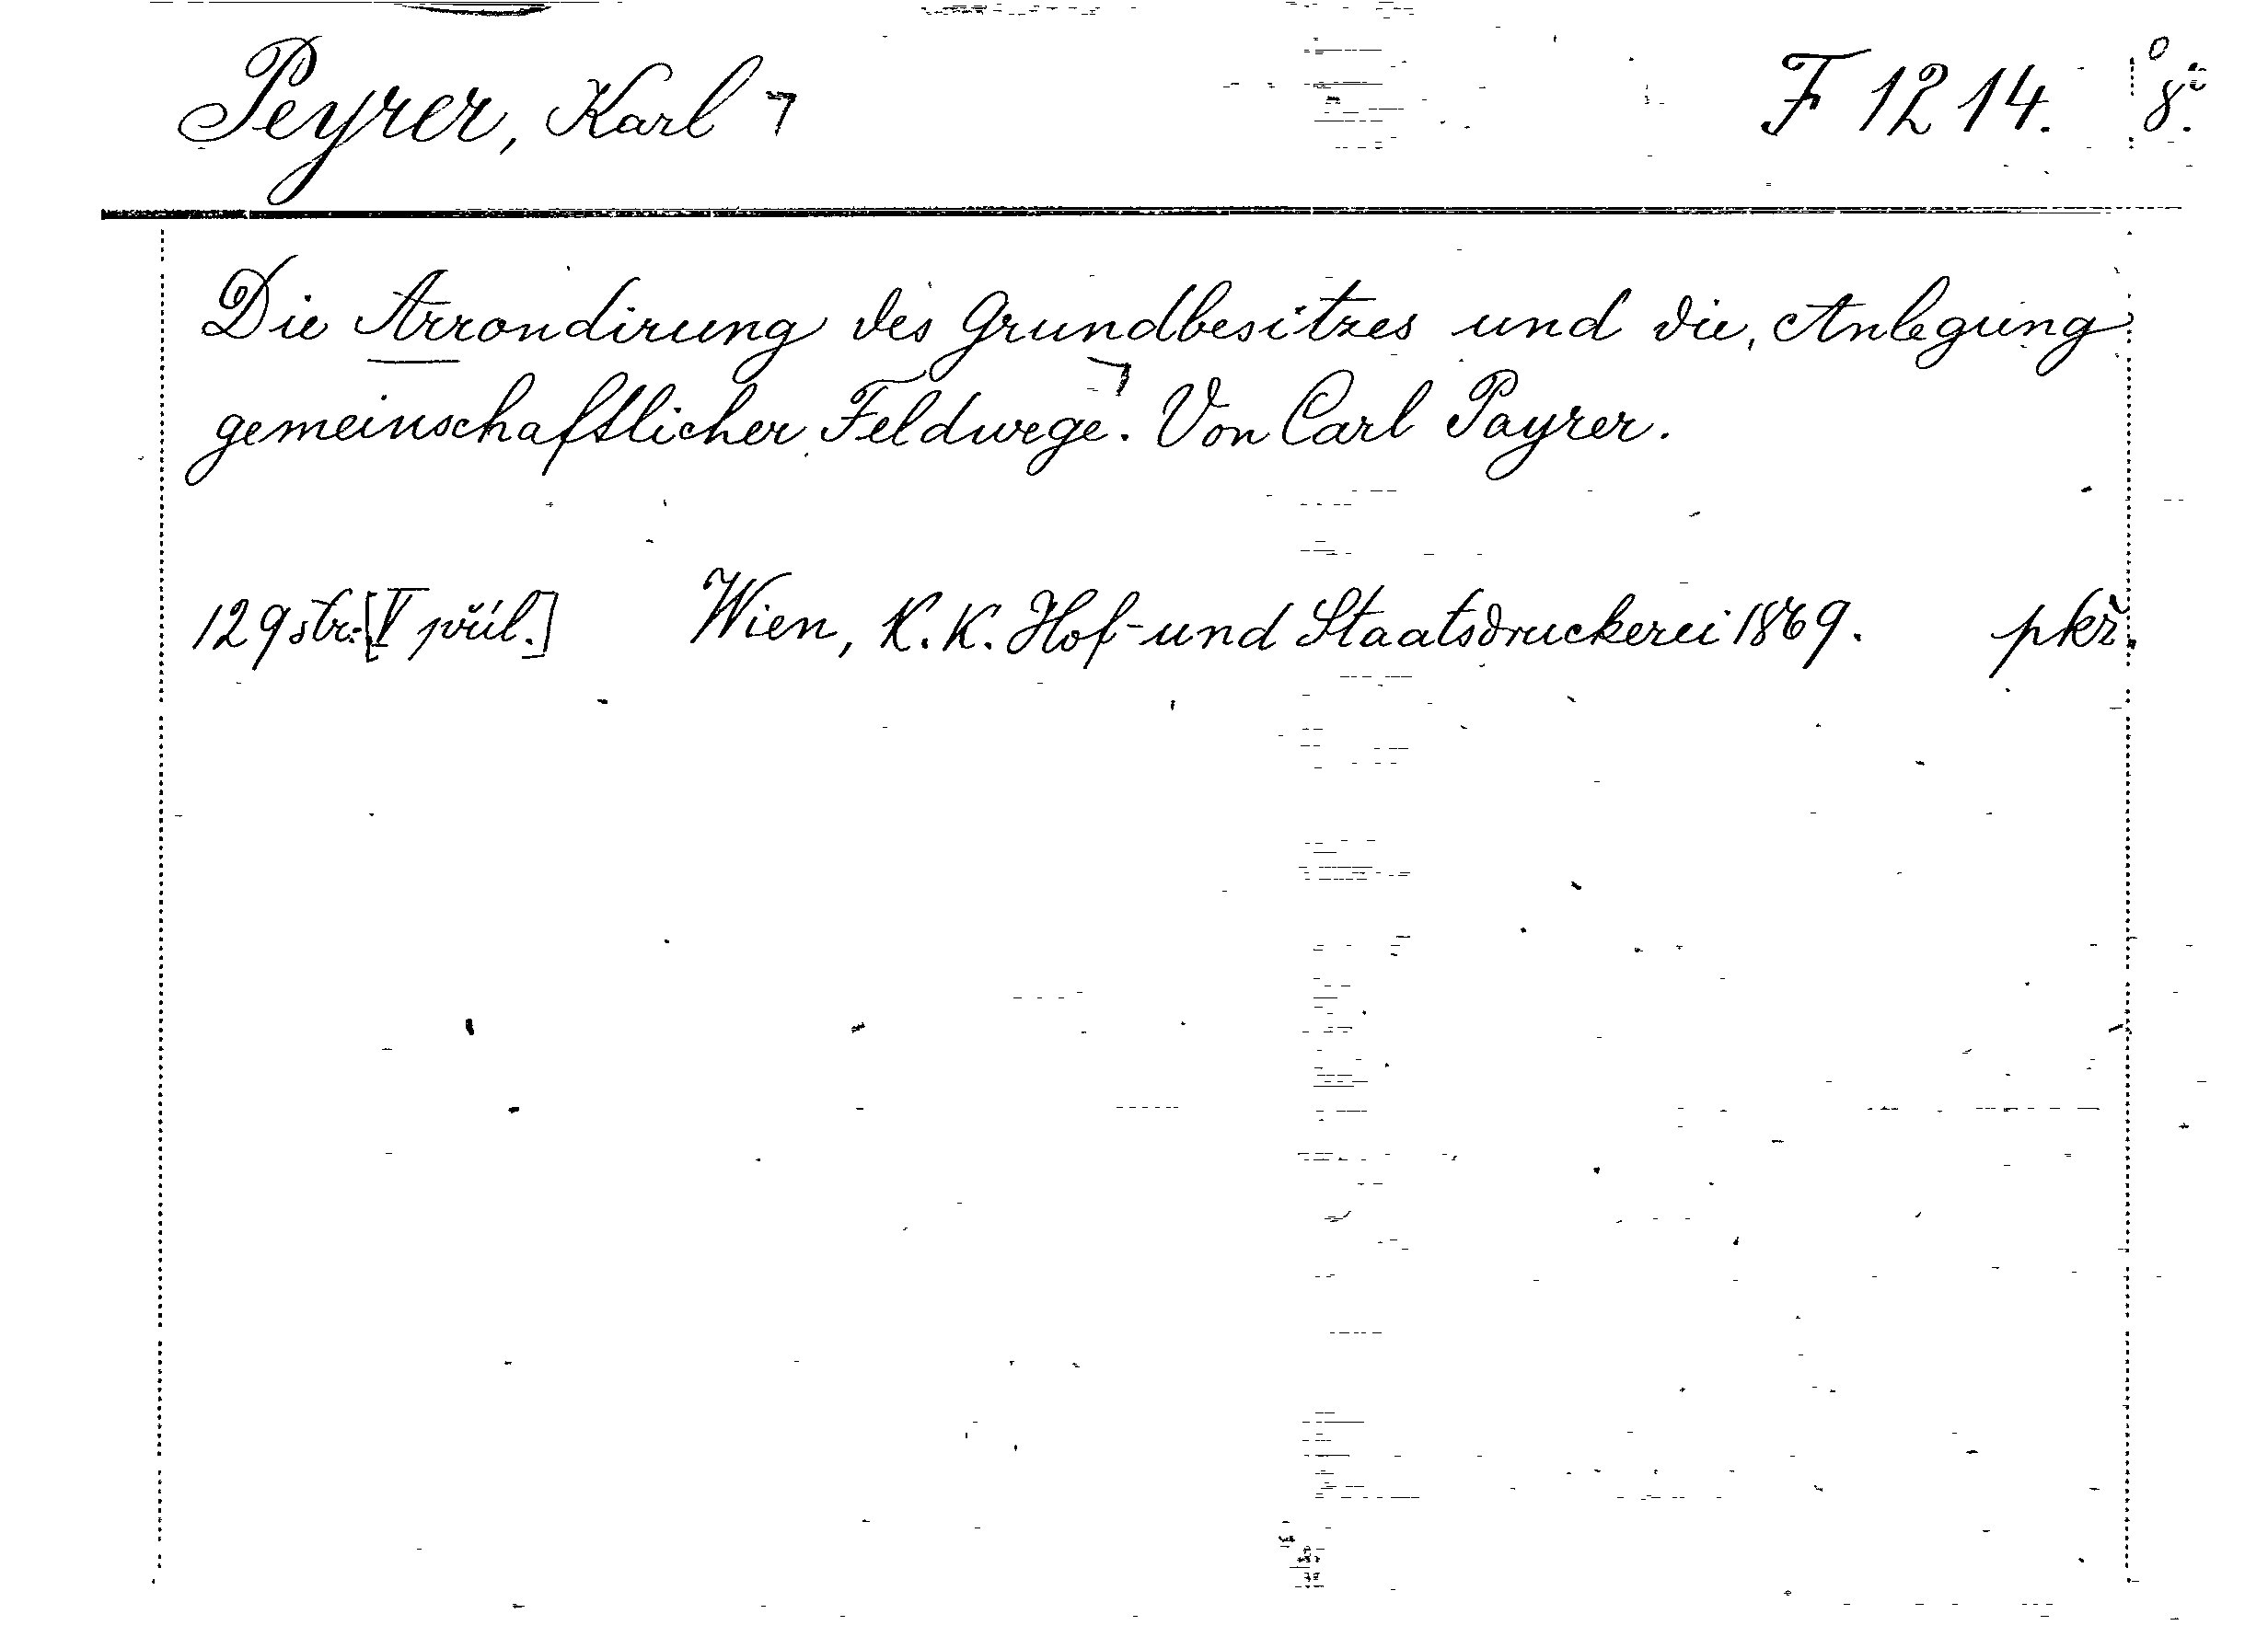 Peyrer, Karl ¬ F 1214. 8°.
Die Arrondirung des Grundbesitzes und die Anlegung
gemeinschaftlicher Feldwege¬. Von Carl Payrer.
129 str. [V příl.] Wien, K. K. Hof- und Staatsdruckerei 1869. pkž.